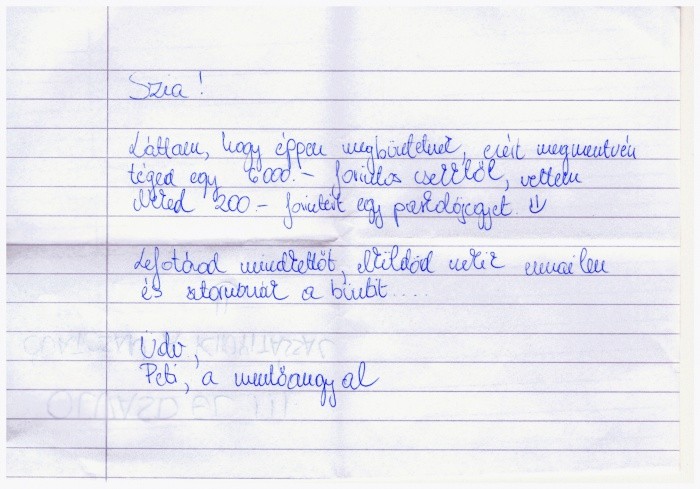 Szia!
Láttam, hogy éppen megbüntetnek, ezért megmentvén
téged egy 6000.- forintos csekktől, vettem
Neked 200.- forintért egy parkolójegyet.
Lefotózod mindkettőt, elküldöd nekik emailen
és sztornózzák a bünti....
Üdv,
Peti, a mentőangyal
OLVASD EL !!!